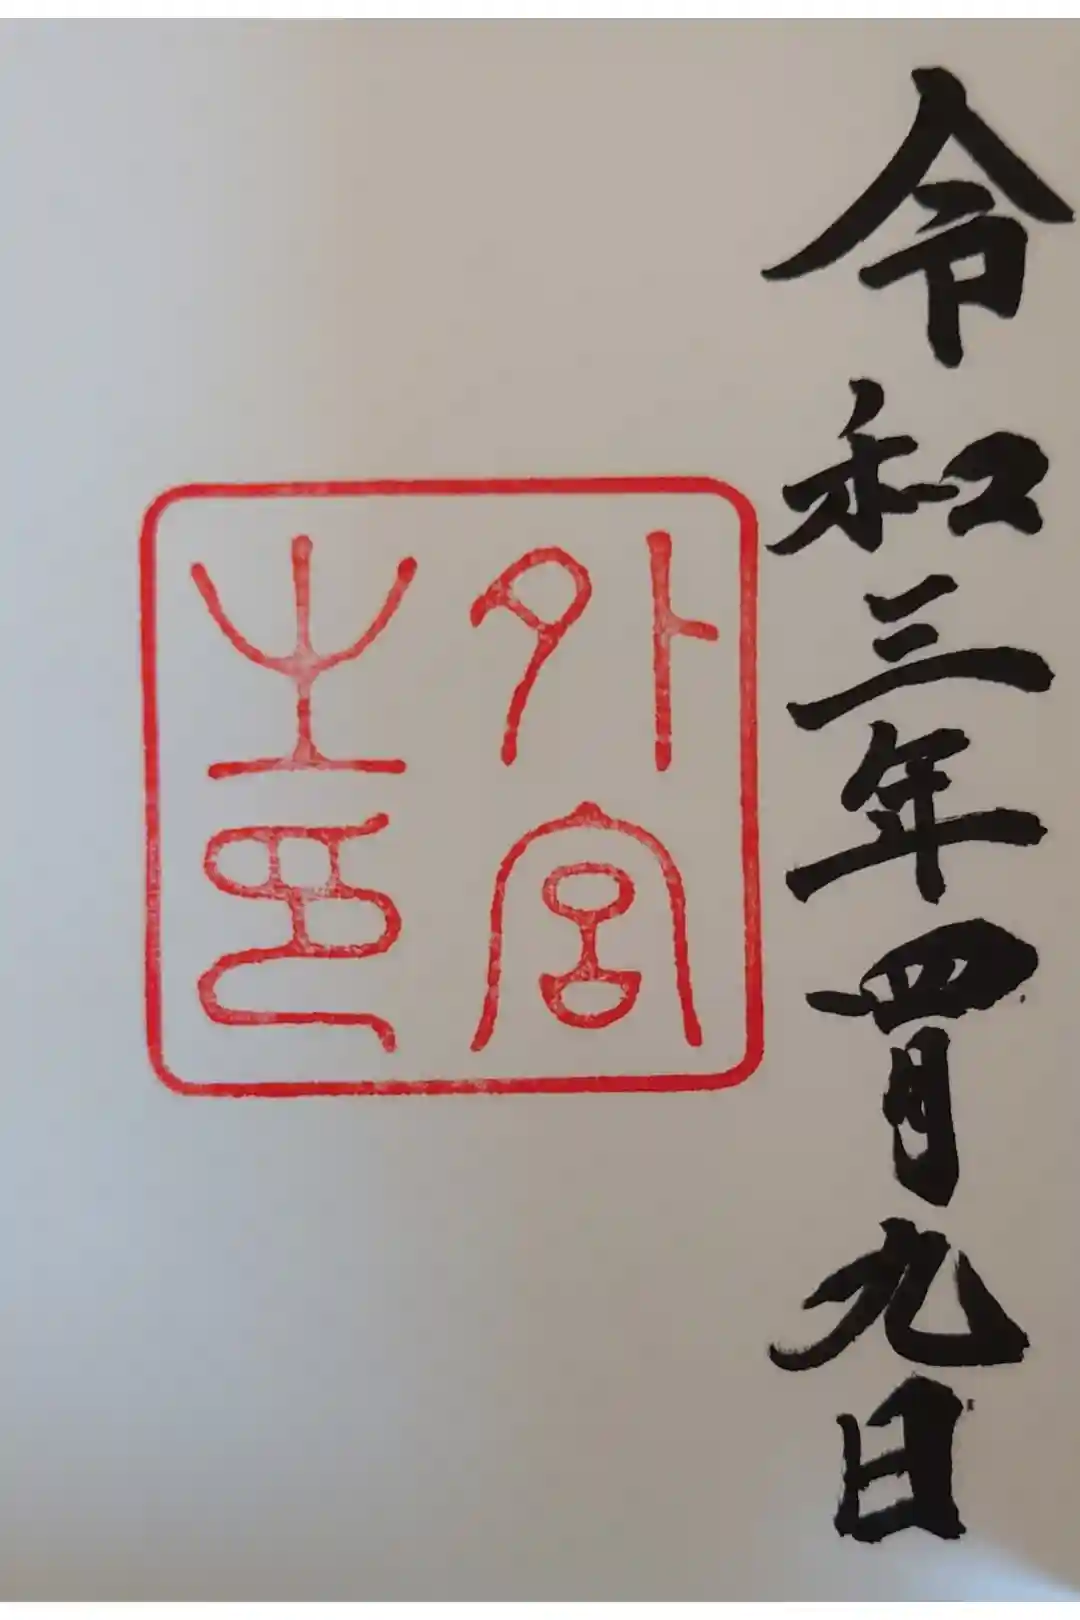 令和三年四月九日
外宮
之印